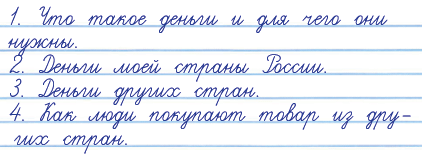 1. Что такое деньги и для чего они
нужны.
2. Деньги моей страны России.
3. Деньги других стран.
4. Как люди покупают товар из дру-
гих стран.